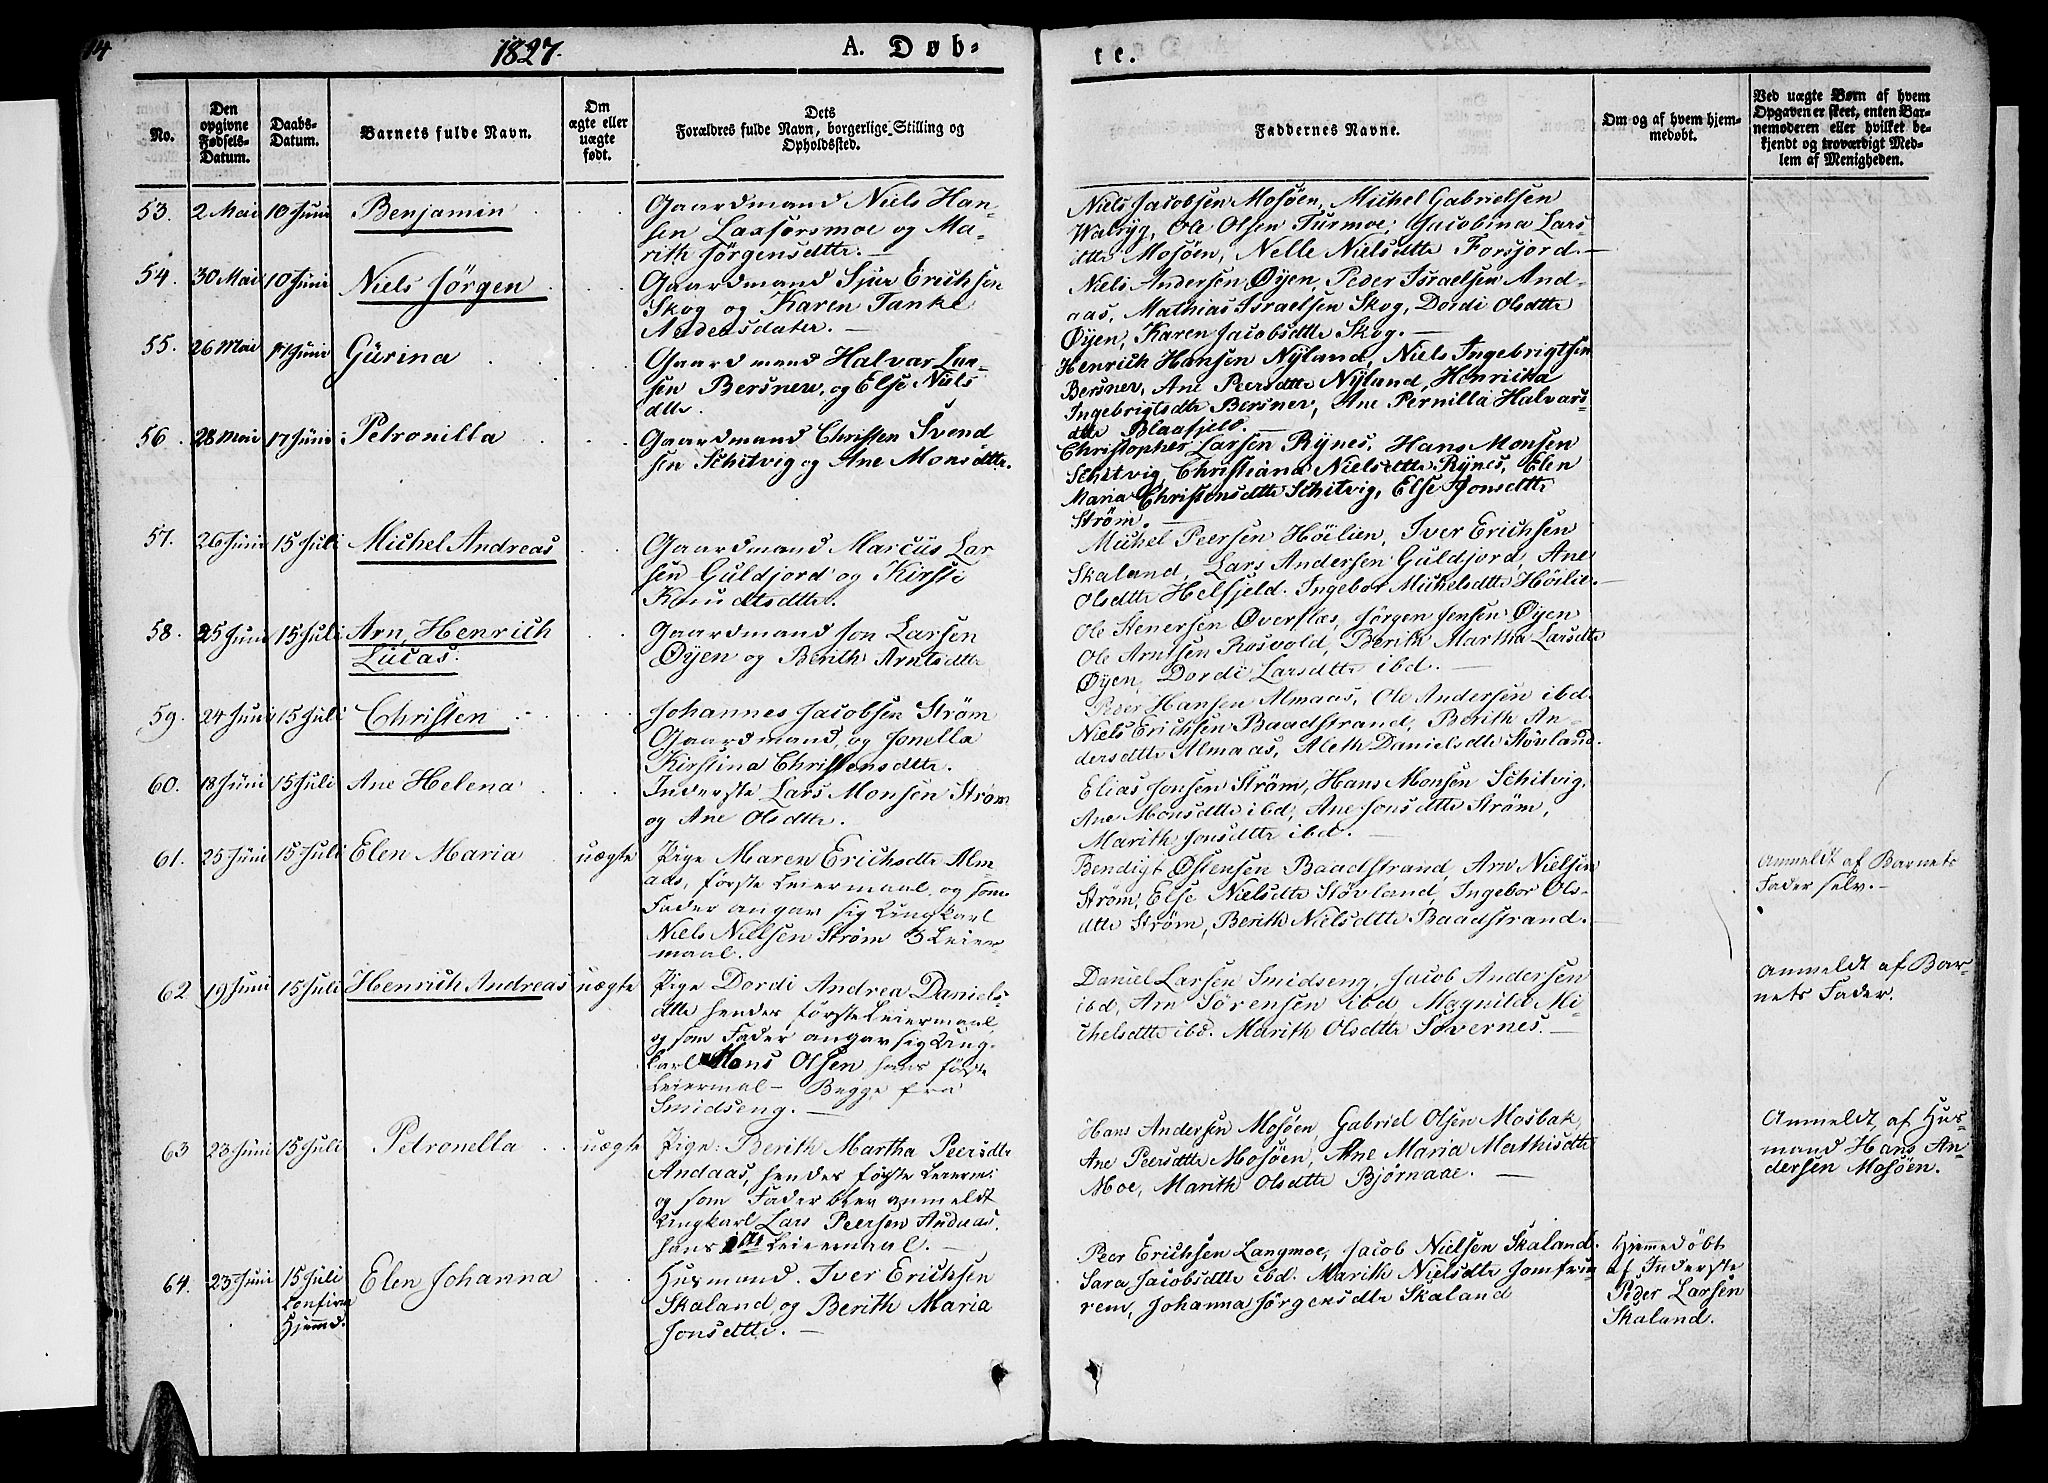 14
1827.
A. Døb-
te.
No.
Den
opgivne
Fødsels-
Datum.
Daabs-
Datum.
Barnets fulde Navn.
Om
ægte eller
uægte
født.
Dets
Forældres fulde Navn, borgerlige Stilling og
Opholdssted.
Faddernes Navne.
Om og af hvem hjem-
medøbt.
Ved uægte Børn af hvem
Opgaven er skeet, enten Bar-
nemoderen eller hvilket be-
kjendt og troværdigt Med-
lem af Menigheden.
53. 2 Mai 10 Juni Benjamin
Gaardmand Niels Han-
sen Laxforsmoe og Ma-
rith Jørgensdttr. —
Niels Jacobsen Mosøen, Michel Gabrielsen
Walryg, Ole Olsen Turmoe, Jacobina Lars
dttr Mosøen, Nelle Nielsdttr Forsjord. —
54. 30 Mai 10 Juni Niels Jørgen
Gaardmand Sjur Erichsen
Skog og Karen Tanke
Andersdater. —
Niels Andersen Øyen, Peder Israelsen And-
aas, Mathias Israelsen Skog, Dordi Olsdttr
Øyen, Karen Jacobsdttr Skog. —
55. 26 Mai 17 Juni Gürina
Gaardmand Halvar Lar-
sen Bersnev, og Else Niels
dttr.
Henrich Hansen Nyland, Niels Ingebrigtsen
Bersnev, Ane Peersdttr Nyland, Henricka
Ingebrigtsdttr Bersnev, Ane Pernilla Halvars-
dttr Blaafjeld. —
56. 28 Mai 17 Juni Petronilla
Gaardmand Christen Svend
sen Schitvig og Ane Monsdttr.
Christopher Larsen Rynes, Hans Monsen
Schitvig, Christiana Nielsdttr Rynes, Elen
Maria Christensdttr Schitvig, Else Jonsdttr
Strøm. —
57. 26 Juni 15 Juli Michel Andreas
Gaardmand Marcus Lar
sen Guldjord og Kirsti
Knudtsdttr.
Michel Peersen Høilien, Iver Erichsen
Skaland, Lars Andersen Guldjord, Ane
Olsdttr Helfjeld. Ingebor Michelsdttr Høilie. —
58. 25 Juni 15 Juli Arn Henrich
Lucas.
Gaardmand Jon Larsen
Øyen og Berith Arntsdttr
Ole Stenersen Øverflæs, Jørgen Jensen Øyen
Ole Arntsen Rosvold, Berith Martha Larsdttr
Øyen, Dordi Larsdttr ibd. —
59. 24 Juni 15 Juli Christen
Johannes Jacobsen Strøm
Gaardmand, og Jonella
Kirstina Christensdttr.
Peer Hansen Almaas, Ole Andersen ibd.
Niels Erichsen Baadstrand, Berith An-
dersdttr Almaas, Aleth Danielsdtr Støvland.
60. 18 Juni 15 Juli Ane Helena
Inderste Lars Monsen Strøm
og Ane Olsdttr. —
Elias Jonsen Strøm, Hans Monsen Schitvig,
Ane Monsdttr ibd, Ane Jonsdttr Strøm,
Marith Jonsdttr ibd. —
61. 25 Juni 15 Juli Elen Maria uægte
Pige Maren Erichsdtr Alm
aas, første Leiermaal, og som
Fader angav sig Ungkarl
Niels Nielsen Strøm 3 Leier
maal.
Bendigt Østensen Baadstrand, Arn Nielsen
Strøm, Else Nielsdttr Støvland, Ingebor Ols-
dttr Strøm, Berith Nielsdttr Baadstrand.
Anmeldt af Barnets
Fader selv. —
62 19 Juni 15 Juli Henrich Andreas uægte
Pige Dordi Andrea Daniels-
dttr hendes første Leiermaal,
og som Fader angav sig Ung-
karl Mons Olsen hans første
Leiermal — Begge fra
Smidseng. —
Daniel Larsen Smidseng, Jacob Andersen
ibd, Arn Sørensen ibd, Magnild Mi-
chelsdttr ibd. Marith Olsdttr Søvernes. —
Anmeldt af Bar-
nets Fader.
63 23 Juni 15 Juli Petronella uægte
Pige: Berith Martha Peersdtr
Andaas, hendes første Leierm:
og som Fader blev anmeldt
Ungkarl Lars Peersen Andaas,
hans 1ste Leiermaal. —
Hans Andersen Mosøen, Gabriel Olsen Mosbak,
Ane Peersdttr Mosøen, Ane Maria Mathisdttr
Moe, Marith Olsdttr Bjørnaae —
Anmeldt, af Hus
mand Hans An-
dersen Mosøen.
64. 23 Juni 15 Juli
Confirm
Hjemd. Elen Johanna
Husmand. Iver Erichsen
Skaland, og Berith Maria
Jonsdttr. —
Peer Erichsen Langmoe, Jacob Nielsen Skaland.
Sara Jacobsdttr ibd. Marith Nielsdtr Jomfru-
rem, Johanna Jørgensdtr Skaland
Hjemmedøbt
af Inderste
Peder Larsen
Skaland.